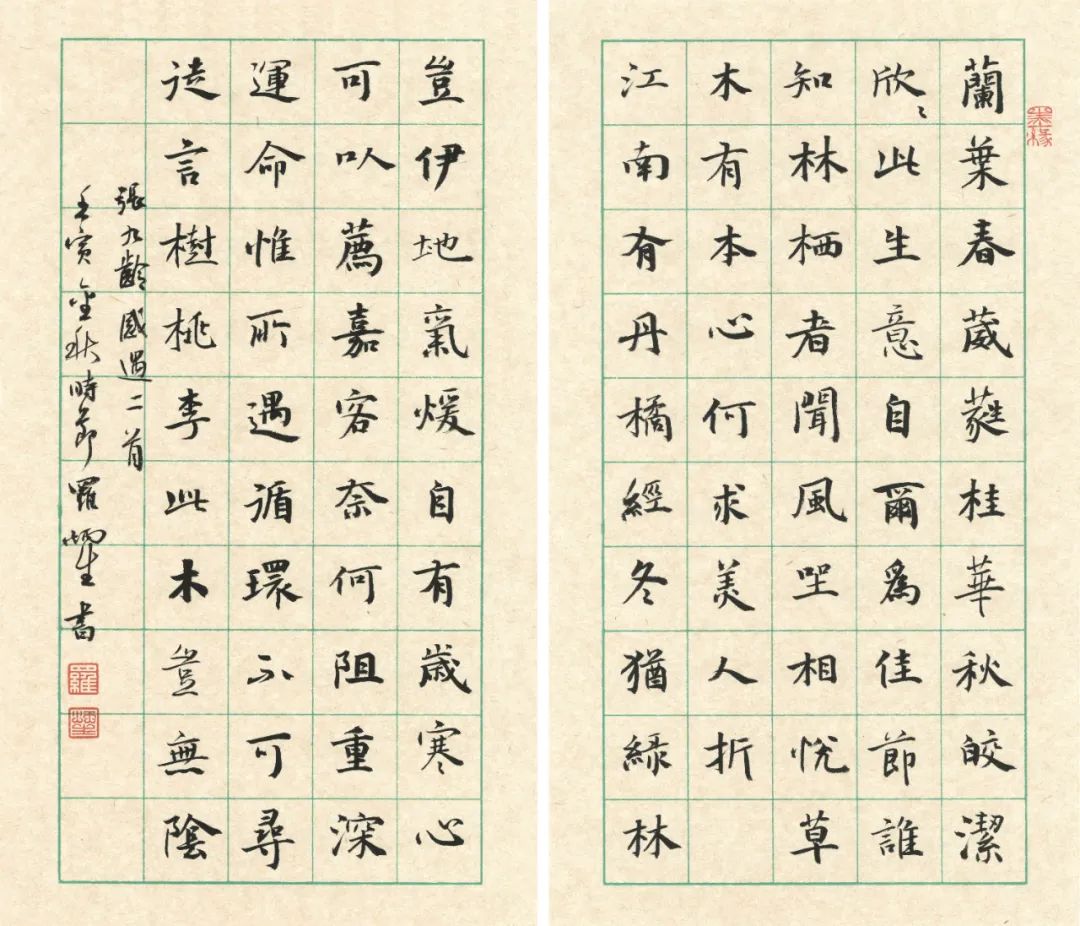 蘭葉春葳蕤桂華秋皎潔
欣〻此生意自爾爲佳節誰
知林栖者聞風坐相悅草
木有本心何求美人折
江南有丹橘經冬猶綠林
豈伊地氣煖自有歲寒心
可以薦嘉客奈何阻重深
運命惟所遇循環不可尋
徒言樹桃李此木豈無陰
張九齡感遇二首
壬寅金秋時節羅書
墨緣
羅